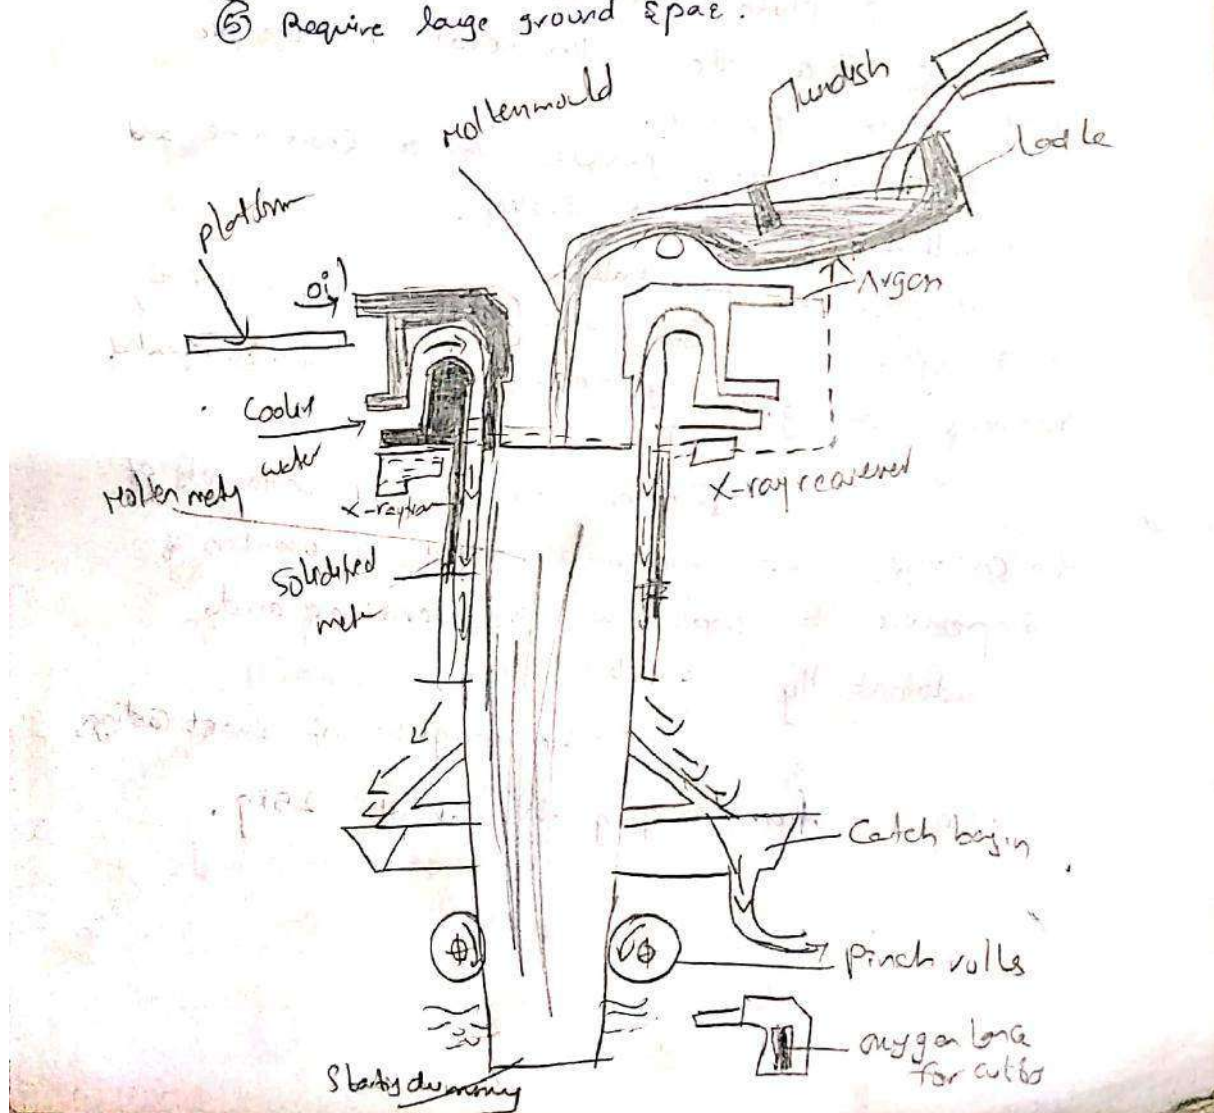 ⑤ Require large ground spae.
Molten mould
Tundish
Ladle
platform
oil
Argon
Cooling
water
X-ray receiver
Molten metal
X-ray
Solidified
metal
Catch basin
Pinch rolls
oxygen lance
for cutting
Starting dummy